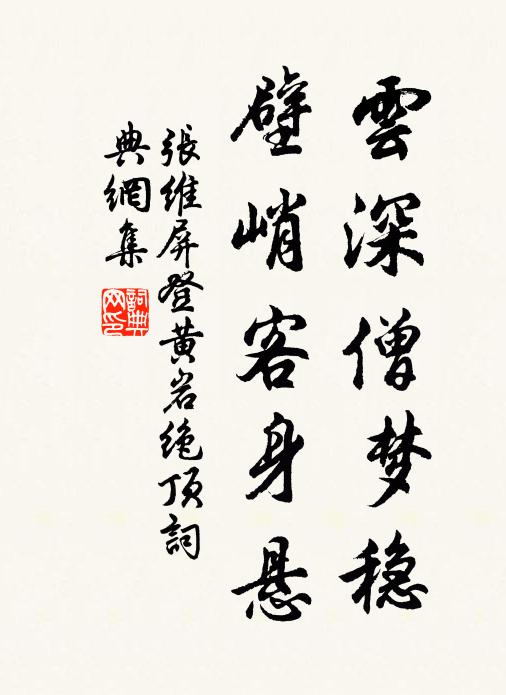 雲深僧梦稳
壁峭客身悬
張維屏登黄岩绝顶詞
典網集
詞典网印